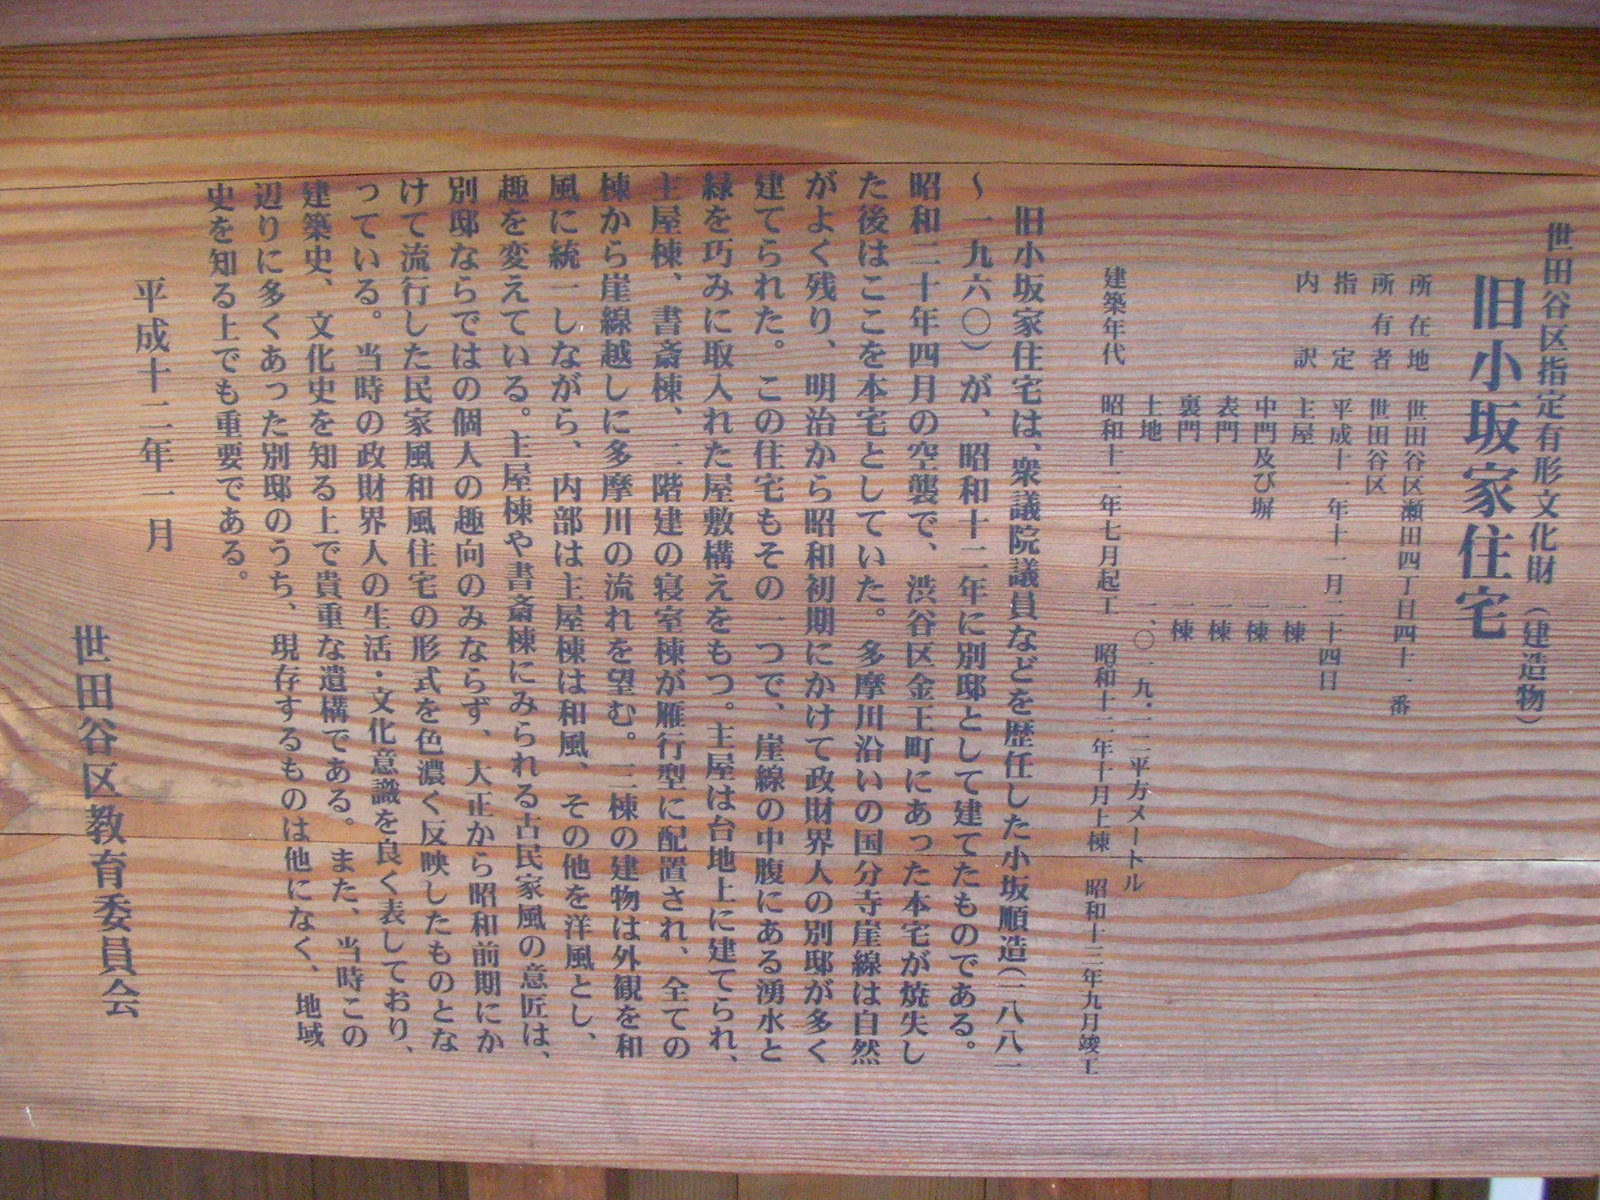 世田谷区指定有形文化財（建造物）
旧小坂家住宅
所在地　世田谷区瀬田四丁目四十一番
所有者　世田谷区
指定　平成十一年十一月二十四日
内訳　主屋　一棟
中門及び塀　一棟
表門　一棟
裏門　一棟
土地　一、〇一九・一二平方メートル
建築年代　昭和十二年七月起工　昭和十二年十月上棟　昭和十三年九月竣工
旧小坂家住宅は、衆議院議員などを歴任した小坂順造（一八八一
～一九六〇）が、昭和十二年に別邸として建てたものである。
昭和二十年四月の空襲で、渋谷区金王町にあった本宅が焼失し
た後はここを本宅としていた。多摩川沿いの国分寺崖線は自然
がよく残り、明治から昭和初期にかけて政財界人の別邸が多く
建てられた。この住宅もその一つで、崖線の中腹にある湧水と
緑を巧みに取入れた屋敷構えをもつ。主屋は台地上に建てられ、
主屋棟、書斎棟、二階建の寝室棟が雁行型に配置され、全ての
棟から崖線越しに多摩川の流れを望む。三棟の建物は外観を和
風に統一しながら、内部は主屋棟は和風、その他を洋風とし、
趣を変えている。主屋棟や書斎棟にみられる古民家風の意匠は、
別邸ならではの個人の趣向のみならず、大正から昭和前期にか
けて流行した民家風和風住宅の形式を色濃く反映したものとな
っている。当時の政財界人の生活・文化意識を良く表しており、
建築史、文化史を知る上で貴重な遺構である。また、当時この
辺りに多くあった別邸のうち、現存するものは他になく、地域
史を知る上でも重要である。
平成十二年一月
世田谷区教育委員会